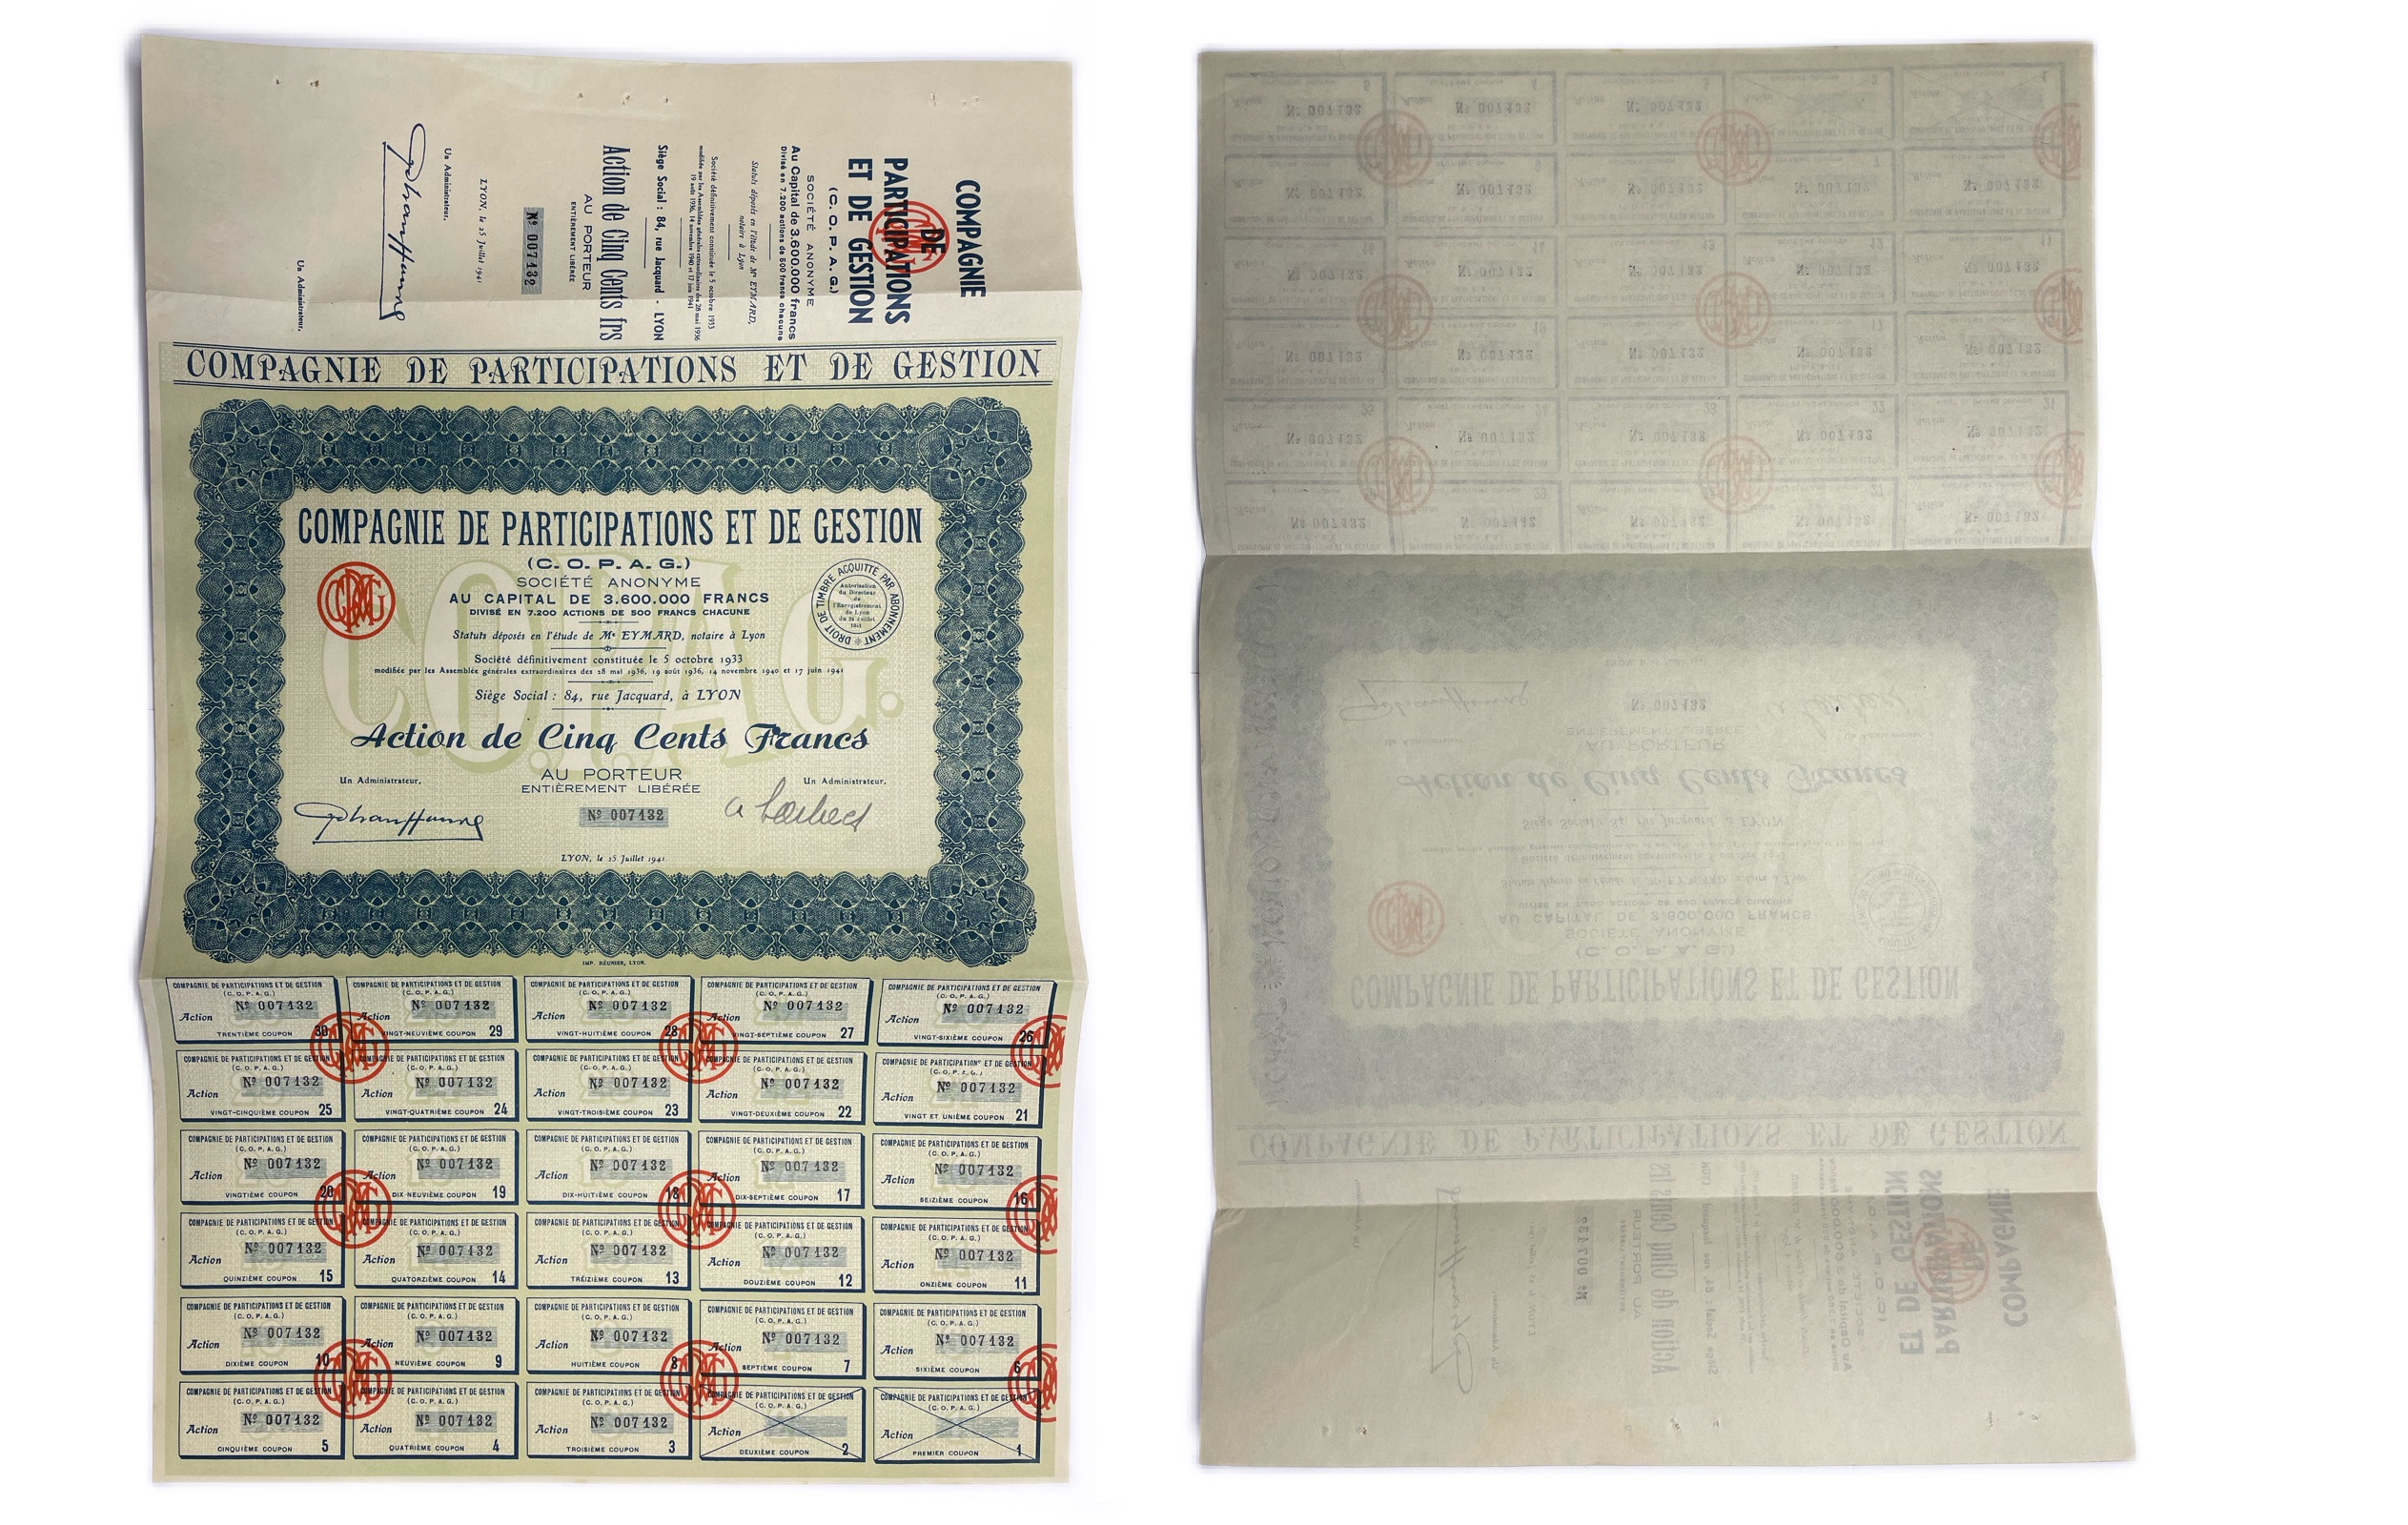 COMPAGNIE
DE
PARTICIPATIONS
ET DE GESTION
(C.O.P.A.G.)
SOCIÉTÉ ANONYME
Au Capital de 3.600.000 francs
Divisé en 7.200 actions de 500 francs chacune
Statuts déposés en l'étude de Mᵉ EYMARD,
notaire à Lyon
Société définitivement constituée le 5 octobre 1933
modifiée par les Assemblées générales extraordinaires des 28 mai 1936
19 août 1936, 14 novembre 1940 et 17 juin 1941
Siège Social : 84, rue Jacquard - LYON
Action de Cinq Cents frs
AU PORTEUR
ENTIÈREMENT LIBÉRÉE
Nº 007132
LYON, le 25 Juillet 1941
Un Administrateur.
Un Administrateur.
COMPAGNIE DE PARTICIPATIONS ET DE GESTION
COMPAGNIE DE PARTICIPATIONS ET DE GESTION
(C. O. P. A. G.)
SOCIÉTÉ ANONYME
AU CAPITAL DE 3.600.000 FRANCS
DIVISÉ EN 7.200 ACTIONS DE 500 FRANCS CHACUNE
DROIT DE TIMBRE ACQUITTÉ PAR ABONNEMENT
Autorisation
du Directeur
de
l'Enregistrement
de Lyon
du 24 Juillet
1941
Statuts déposés en l'étude de Mᵉ EYMARD, notaire à Lyon
Société définitivement constituée le 5 octobre 1933
modifiée par les Assemblée générales extraordinaires des 28 mai 1936, 19 août 1936, 14 novembre 1940 et 17 juin 1941
Siège Social : 84, rue Jacquard, à LYON
C.O.P.A.G.
Action de Cinq Cents Francs
Un Administrateur.
AU PORTEUR
ENTIÈREMENT LIBÉRÉE
Un Administrateur.
Nº 007132
LYON, le 25 Juillet 1941
IMP. RÉUNIES, LYON.
COMPAGNIE DE PARTICIPATIONS ET DE GESTION
(C. O. P. A. G.)
Nº 007132
Action
TRENTIÈME COUPON 30
COMPAGNIE DE PARTICIPATIONS ET DE GESTION
(C. O. P. A. G.)
Nº 007132
Action
VINGT-NEUVIÈME COUPON 29
COMPAGNIE DE PARTICIPATIONS ET DE GESTION
(C. O. P. A. G.)
Nº 007132
Action
VINGT-HUITIÈME COUPON 28
COMPAGNIE DE PARTICIPATIONS ET DE GESTION
(C. O. P. A. G.)
Nº 007132
Action
VINGT-SEPTIÈME COUPON 27
COMPAGNIE DE PARTICIPATIONS ET DE GESTION
(C. O. P. A. G.)
Nº 007132
Action
VINGT-SIXIÈME COUPON 26
COMPAGNIE DE PARTICIPATIONS ET DE GESTION
(C. O. P. A. G.)
Nº 007132
Action
VINGT-CINQUIÈME COUPON 25
COMPAGNIE DE PARTICIPATIONS ET DE GESTION
(C. O. P. A. G.)
Nº 007132
Action
VINGT-QUATRIÈME COUPON 24
COMPAGNIE DE PARTICIPATIONS ET DE GESTION
(C. O. P. A. G.)
Nº 007132
Action
VINGT-TROISIÈME COUPON 23
COMPAGNIE DE PARTICIPATIONS ET DE GESTION
(C. O. P. A. G.)
Nº 007132
Action
VINGT-DEUXIÈME COUPON 22
COMPAGNIE DE PARTICIPATIONS ET DE GESTION
(C. O. P. A. G.)
Nº 007132
Action
VINGT ET UNIÈME COUPON 21
COMPAGNIE DE PARTICIPATIONS ET DE GESTION
(C. O. P. A. G.)
Nº 007132
Action
VINGTIÈME COUPON 20
COMPAGNIE DE PARTICIPATIONS ET DE GESTION
(C. O. P. A. G.)
Nº 007132
Action
DIX-NEUVIÈME COUPON 19
COMPAGNIE DE PARTICIPATIONS ET DE GESTION
(C. O. P. A. G.)
Nº 007132
Action
DIX-HUITIÈME COUPON 18
COMPAGNIE DE PARTICIPATIONS ET DE GESTION
(C. O. P. A. G.)
Nº 007132
Action
DIX-SEPTIÈME COUPON 17
COMPAGNIE DE PARTICIPATIONS ET DE GESTION
(C. O. P. A. G.)
Nº 007132
Action
SEIZIÈME COUPON 16
COMPAGNIE DE PARTICIPATIONS ET DE GESTION
(C. O. P. A. G.)
Nº 007132
Action
QUINZIÈME COUPON 15
COMPAGNIE DE PARTICIPATIONS ET DE GESTION
(C. O. P. A. G.)
Nº 007132
Action
QUATORZIÈME COUPON 14
COMPAGNIE DE PARTICIPATIONS ET DE GESTION
(C. O. P. A. G.)
Nº 007132
Action
TRÉIZIÈME COUPON 13
COMPAGNIE DE PARTICIPATIONS ET DE GESTION
(C. O. P. A. G.)
Nº 007132
Action
DOUZIÈME COUPON 12
COMPAGNIE DE PARTICIPATIONS ET DE GESTION
(C. O. P. A. G.)
Nº 007132
Action
ONZIÈME COUPON 11
COMPAGNIE DE PARTICIPATIONS ET DE GESTION
(C. O. P. A. G.)
Nº 007132
Action
DIXIÈME COUPON 10
COMPAGNIE DE PARTICIPATIONS ET DE GESTION
(C. O. P. A. G.)
Nº 007132
Action
NEUVIÈME COUPON 9
COMPAGNIE DE PARTICIPATIONS ET DE GESTION
(C. O. P. A. G.)
Nº 007132
Action
HUITIÈME COUPON 8
COMPAGNIE DE PARTICIPATIONS ET DE GESTION
(C. O. P. A. G.)
Nº 007132
Action
SEPTIÈME COUPON 7
COMPAGNIE DE PARTICIPATIONS ET DE GESTION
(C. O. P. A. G.)
Nº 007132
Action
SIXIÈME COUPON 6
COMPAGNIE DE PARTICIPATIONS ET DE GESTION
(C. O. P. A. G.)
Nº 007132
Action
CINQUIÈME COUPON 5
COMPAGNIE DE PARTICIPATIONS ET DE GESTION
(C. O. P. A. G.)
Nº 007132
Action
QUATRIÈME COUPON 4
COMPAGNIE DE PARTICIPATIONS ET DE GESTION
(C. O. P. A. G.)
Nº 007132
Action
TROISIÈME COUPON 3
COMPAGNIE DE PARTICIPATIONS ET DE GESTION
(C. O. P. A. G.)
Action
DEUXIÈME COUPON 2
COMPAGNIE DE PARTICIPATIONS ET DE GESTION
(C. O. P. A. G.)
Action
PREMIER COUPON 1